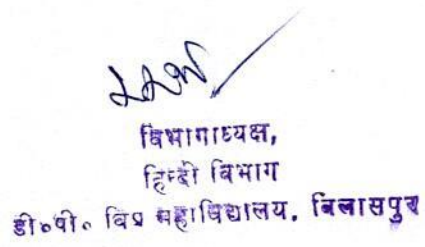 विभागाध्यक्ष,
हिन्दी विभाग
डी०पी० विप्र महाविद्यालय, बिलासपुर